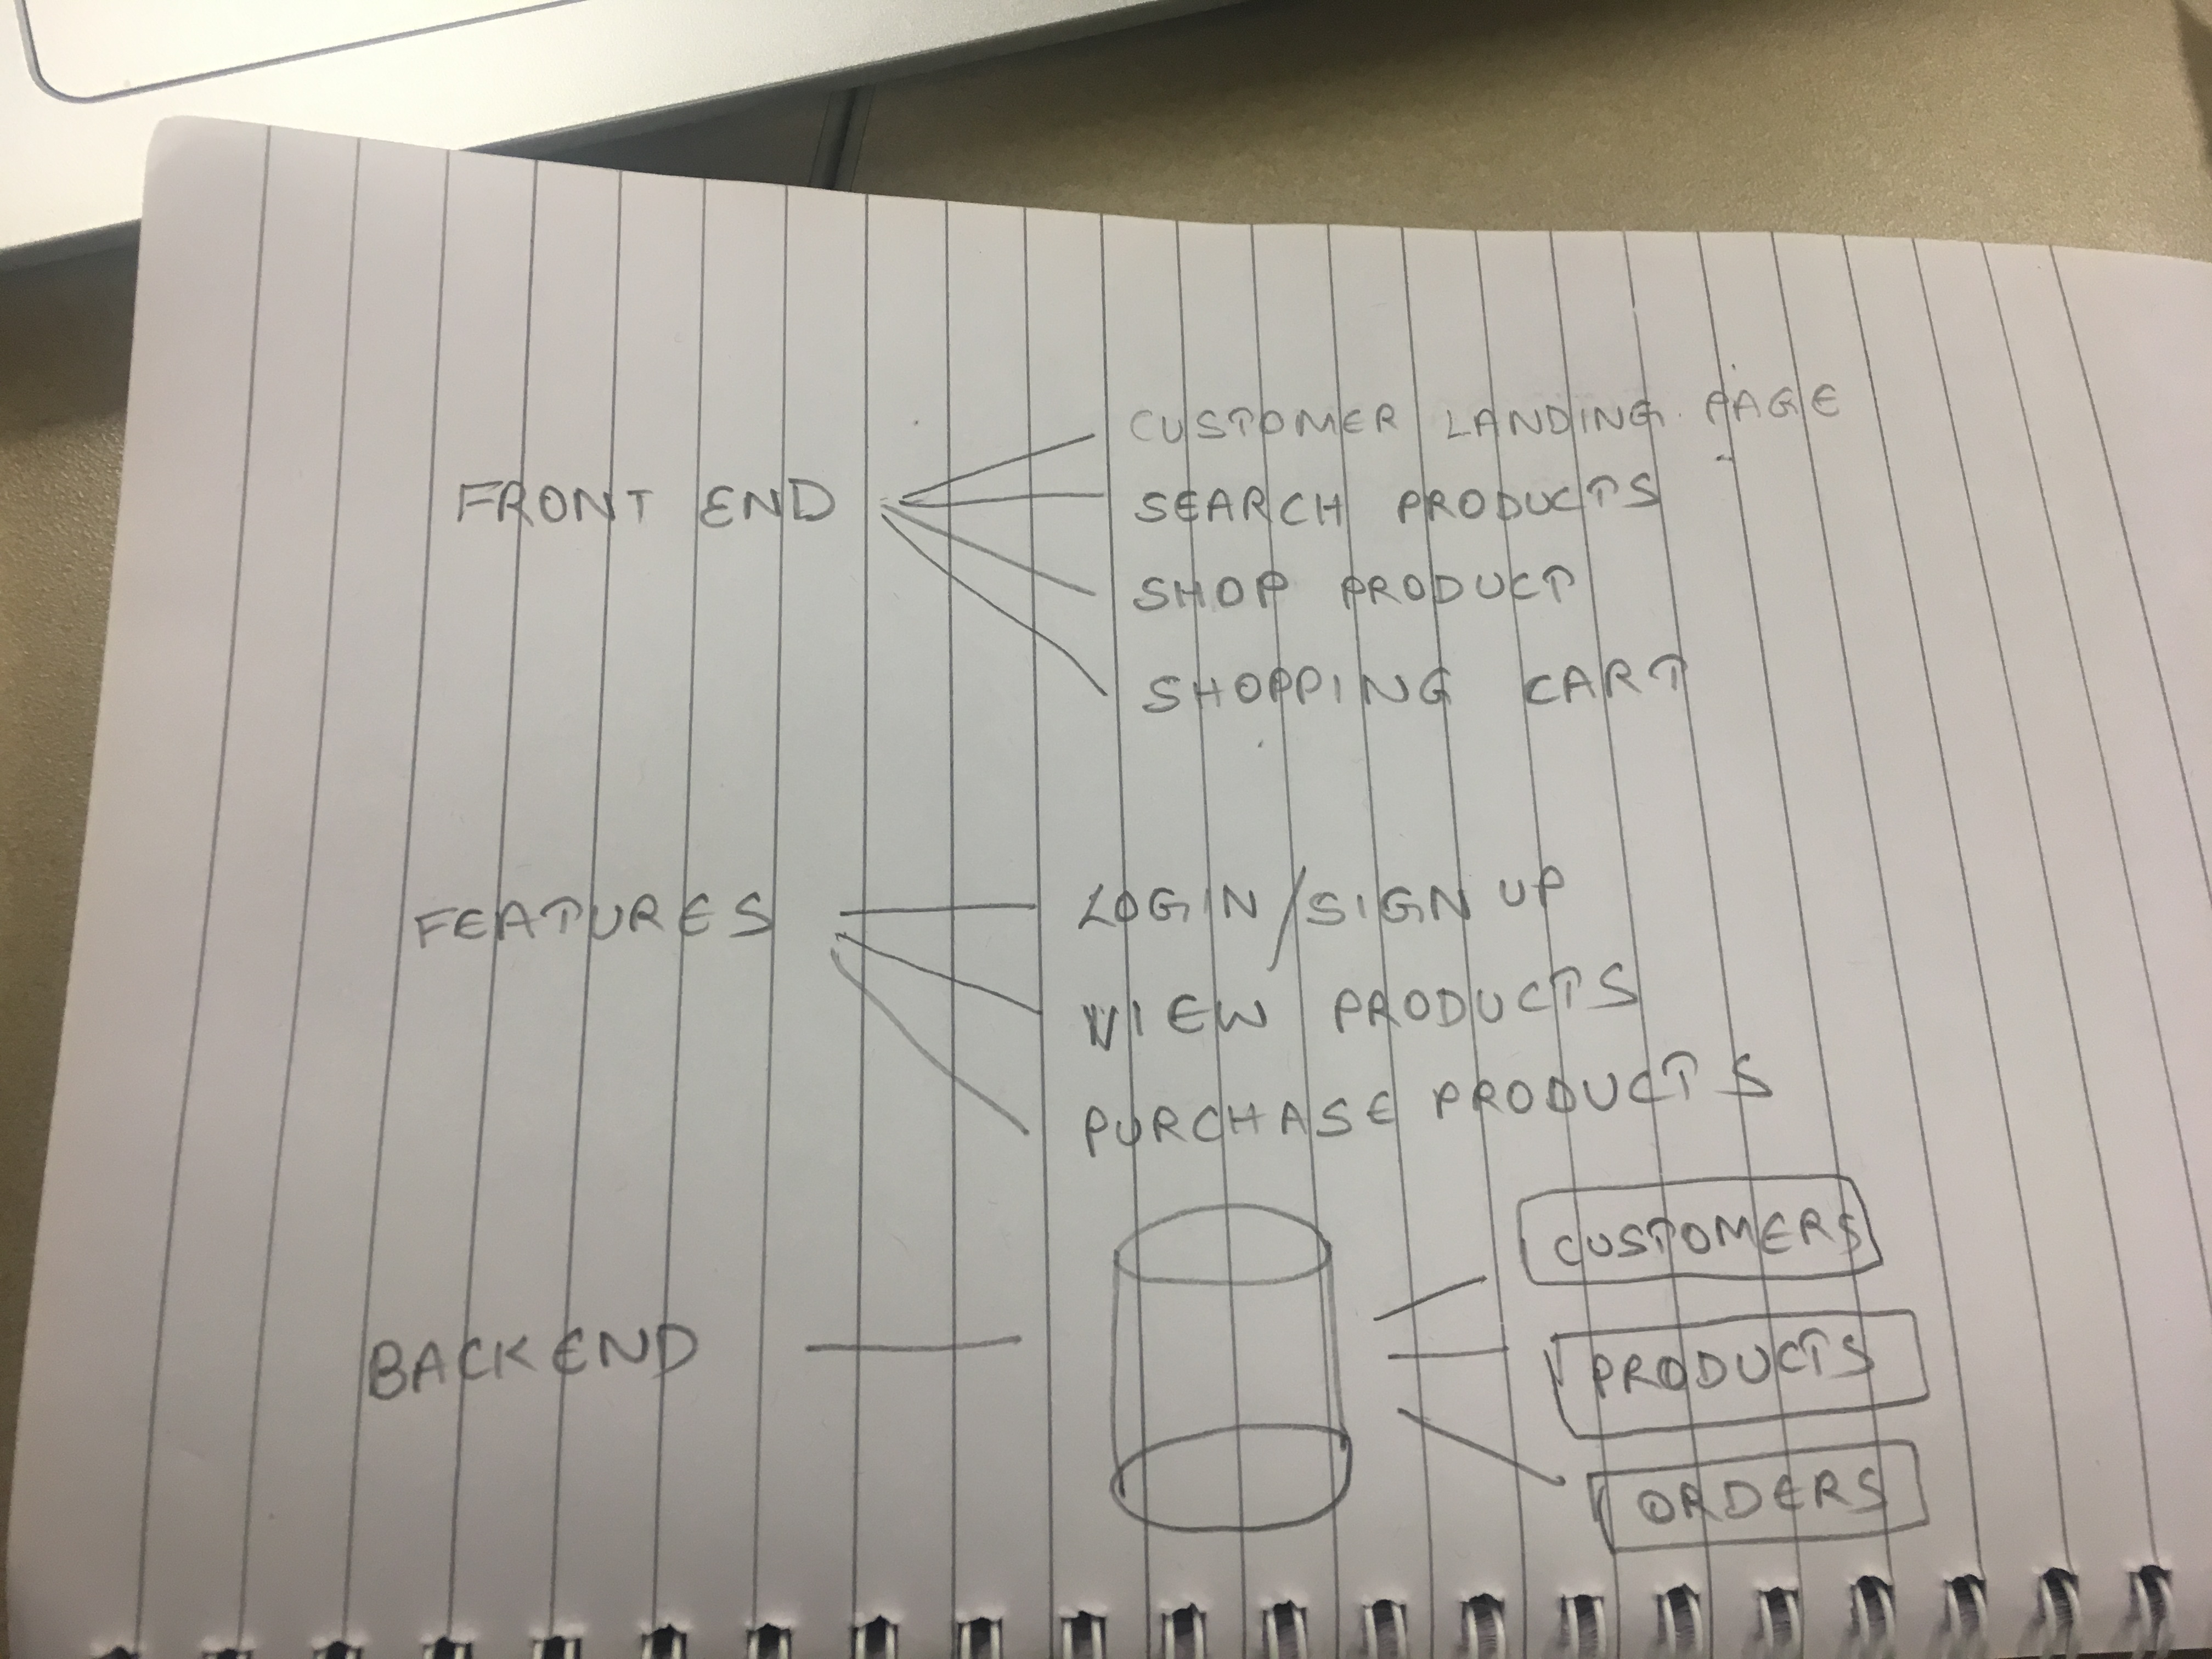 FRONT END
CUSTOMER LANDING PAGE
SEARCH PRODUCTS
SHOP PRODUCT
SHOPPING CART
FEATURES
LOGIN/SIGN UP
VIEW PRODUCTS
PURCHASE PRODUCTS
BACKEND
CUSTOMERS
PRODUCTS
ORDERS